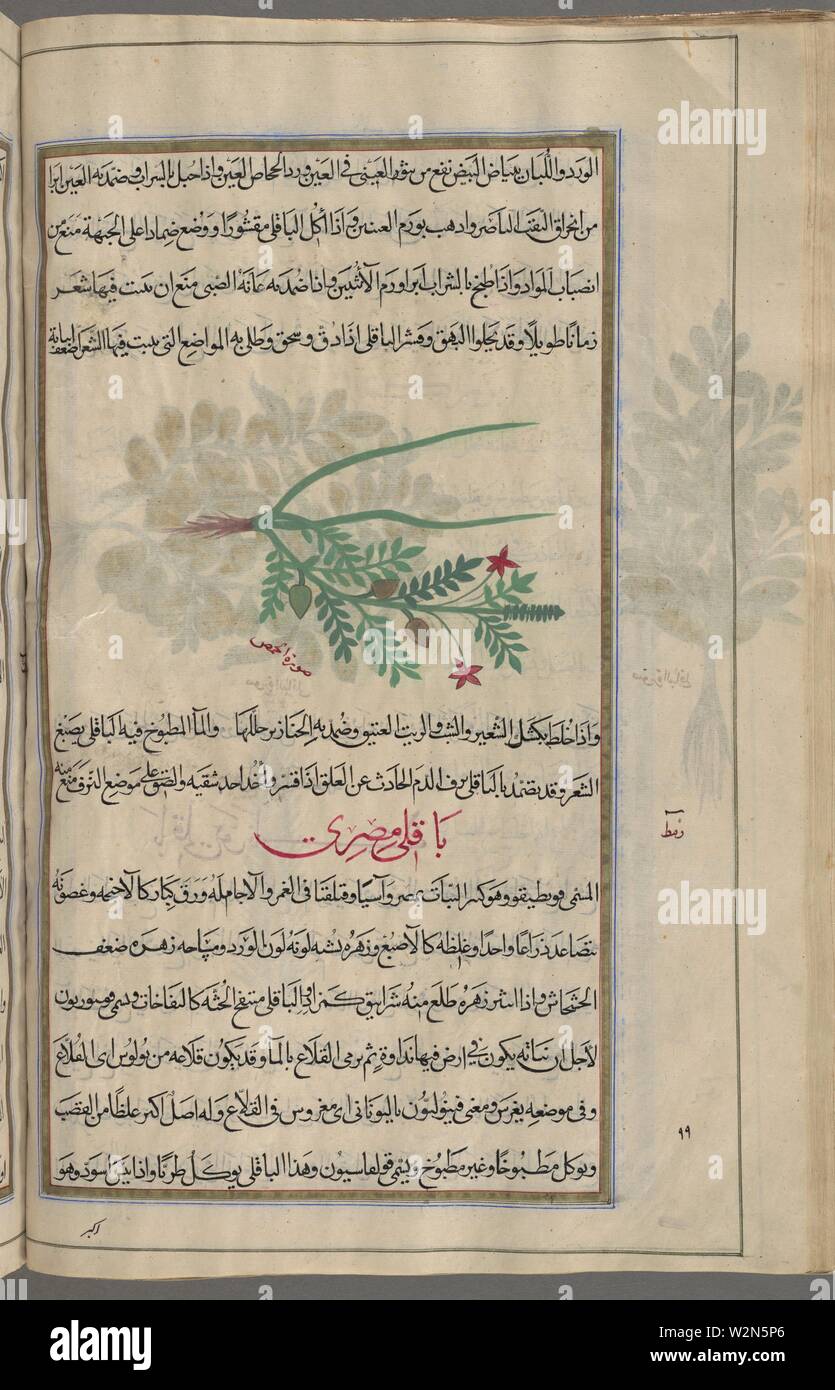 الورد واللبان ببياض البيض نفع من نتو العينى فى العين ورد الحاص العين واذا حبل بالشراب وضمد به العين ابرا
من انخراق الناصر واذهب بورم العينين واذا اكل الباقلى مقشورًا ووضع ضمادا على الجبهة منع من
انصباب المواد واذا طبخ بالشراب ابرا ورم الأنثيين واذا ضمد به عانة الصبى منع ان ينبت فيها شعر
زمانا طويلًا وقد يجلوا البهق وقشر الباقلى اذا دق وسحق وطلى به المواضع التى ينبت فيها الشعر
صورة الحمص
واذا خلط بكشك الشعير والشب والزيت العتيق وضمد به الخنازير حللها والما المطبوخ فيه الباقلى يصبغ
الشعر وقد يضمد بالباقلى نزف الدم الحادث عن العلق اذا قشر واخذ احد شقيه والصق على موضع النزف منع منه
باقلى مصرى
المسمى وهو كثير النبات بمصر وآسيا فى الغمر والآجام له ورق كبار وغصونه
تتصاعد ذراعًا واحدًا وغلظه كالاصبع وزهره يشبه لونه لون الورد ومساحه زهره ضعف
الخشخاش واذا انتثر زهره طلع منه الباقلى منتفخ الجثه كالنفاخات ويسمى
لأجل ان نباته يكون فى ارض فيها نداوة ثم يرمى القلاع بالما وقد يكون قلاعه من بولوس اى القلاع
وفى موضعه يغرس ومعنى باليونانى اى مغروس فى القلاع وله اصل اكبر غلظًا من القصب
ويوكل مطبوخًا وغير مطبوخ ويسمى قولقاسيون وهذا الباقلى يوكل طريًا واذا يبس اسود وهو
٩٩
اكبر
alamy
Image ID: W2N5P6
www.alamy.com